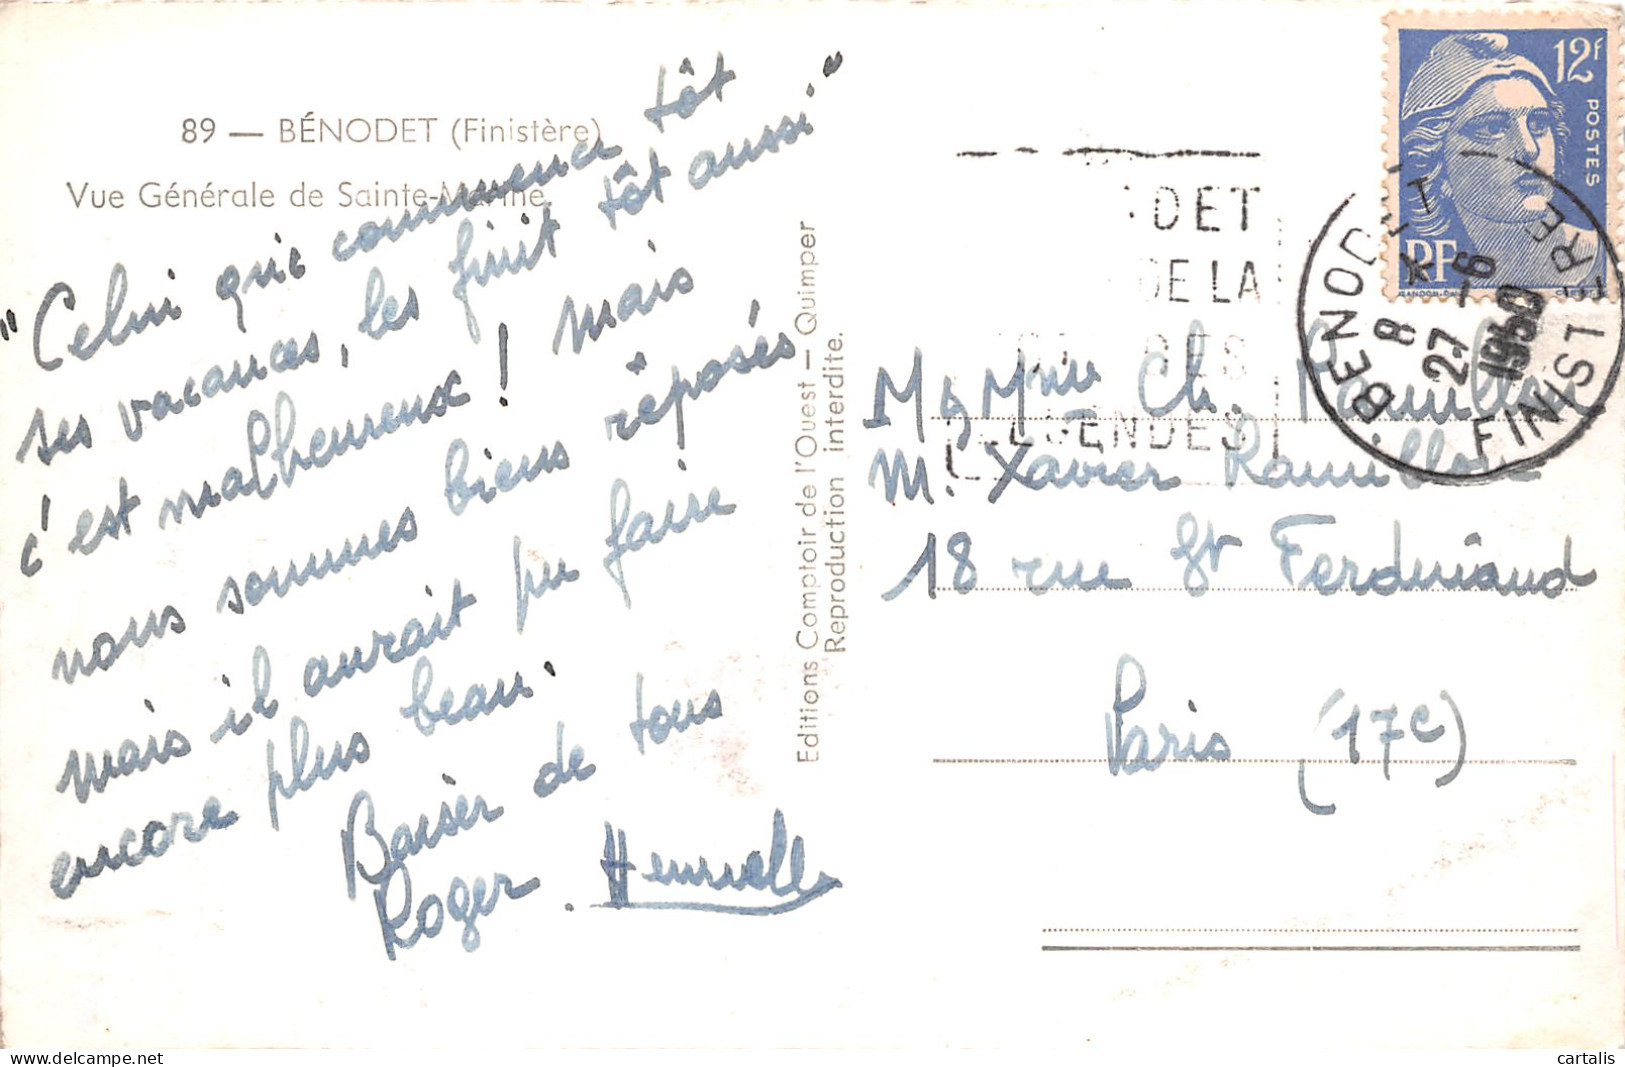 89 — BÉNODET (Finistère)
Vue Générale de Sainte-Marine.
"Celui qui commence tôt
ses vacances, les finit tôt aussi"
c'est malheureux ! Mais
nous sommes biens réposés
mais il aurait pu faire
encore plus beau.
Baiser de tous
Roger.
Editions Comptoir de l'Ouest — Quimper
Reproduction interdite.
DET
DE LA
DES
LEGENDES
12F
POSTES
RF
BENODET
FINISTERE
8 *
27 -6
1950
M, Mme Ch. Ramillon
M. Xavier Ramillon
18 rue St Ferdinand
Paris (17e)
cartalis